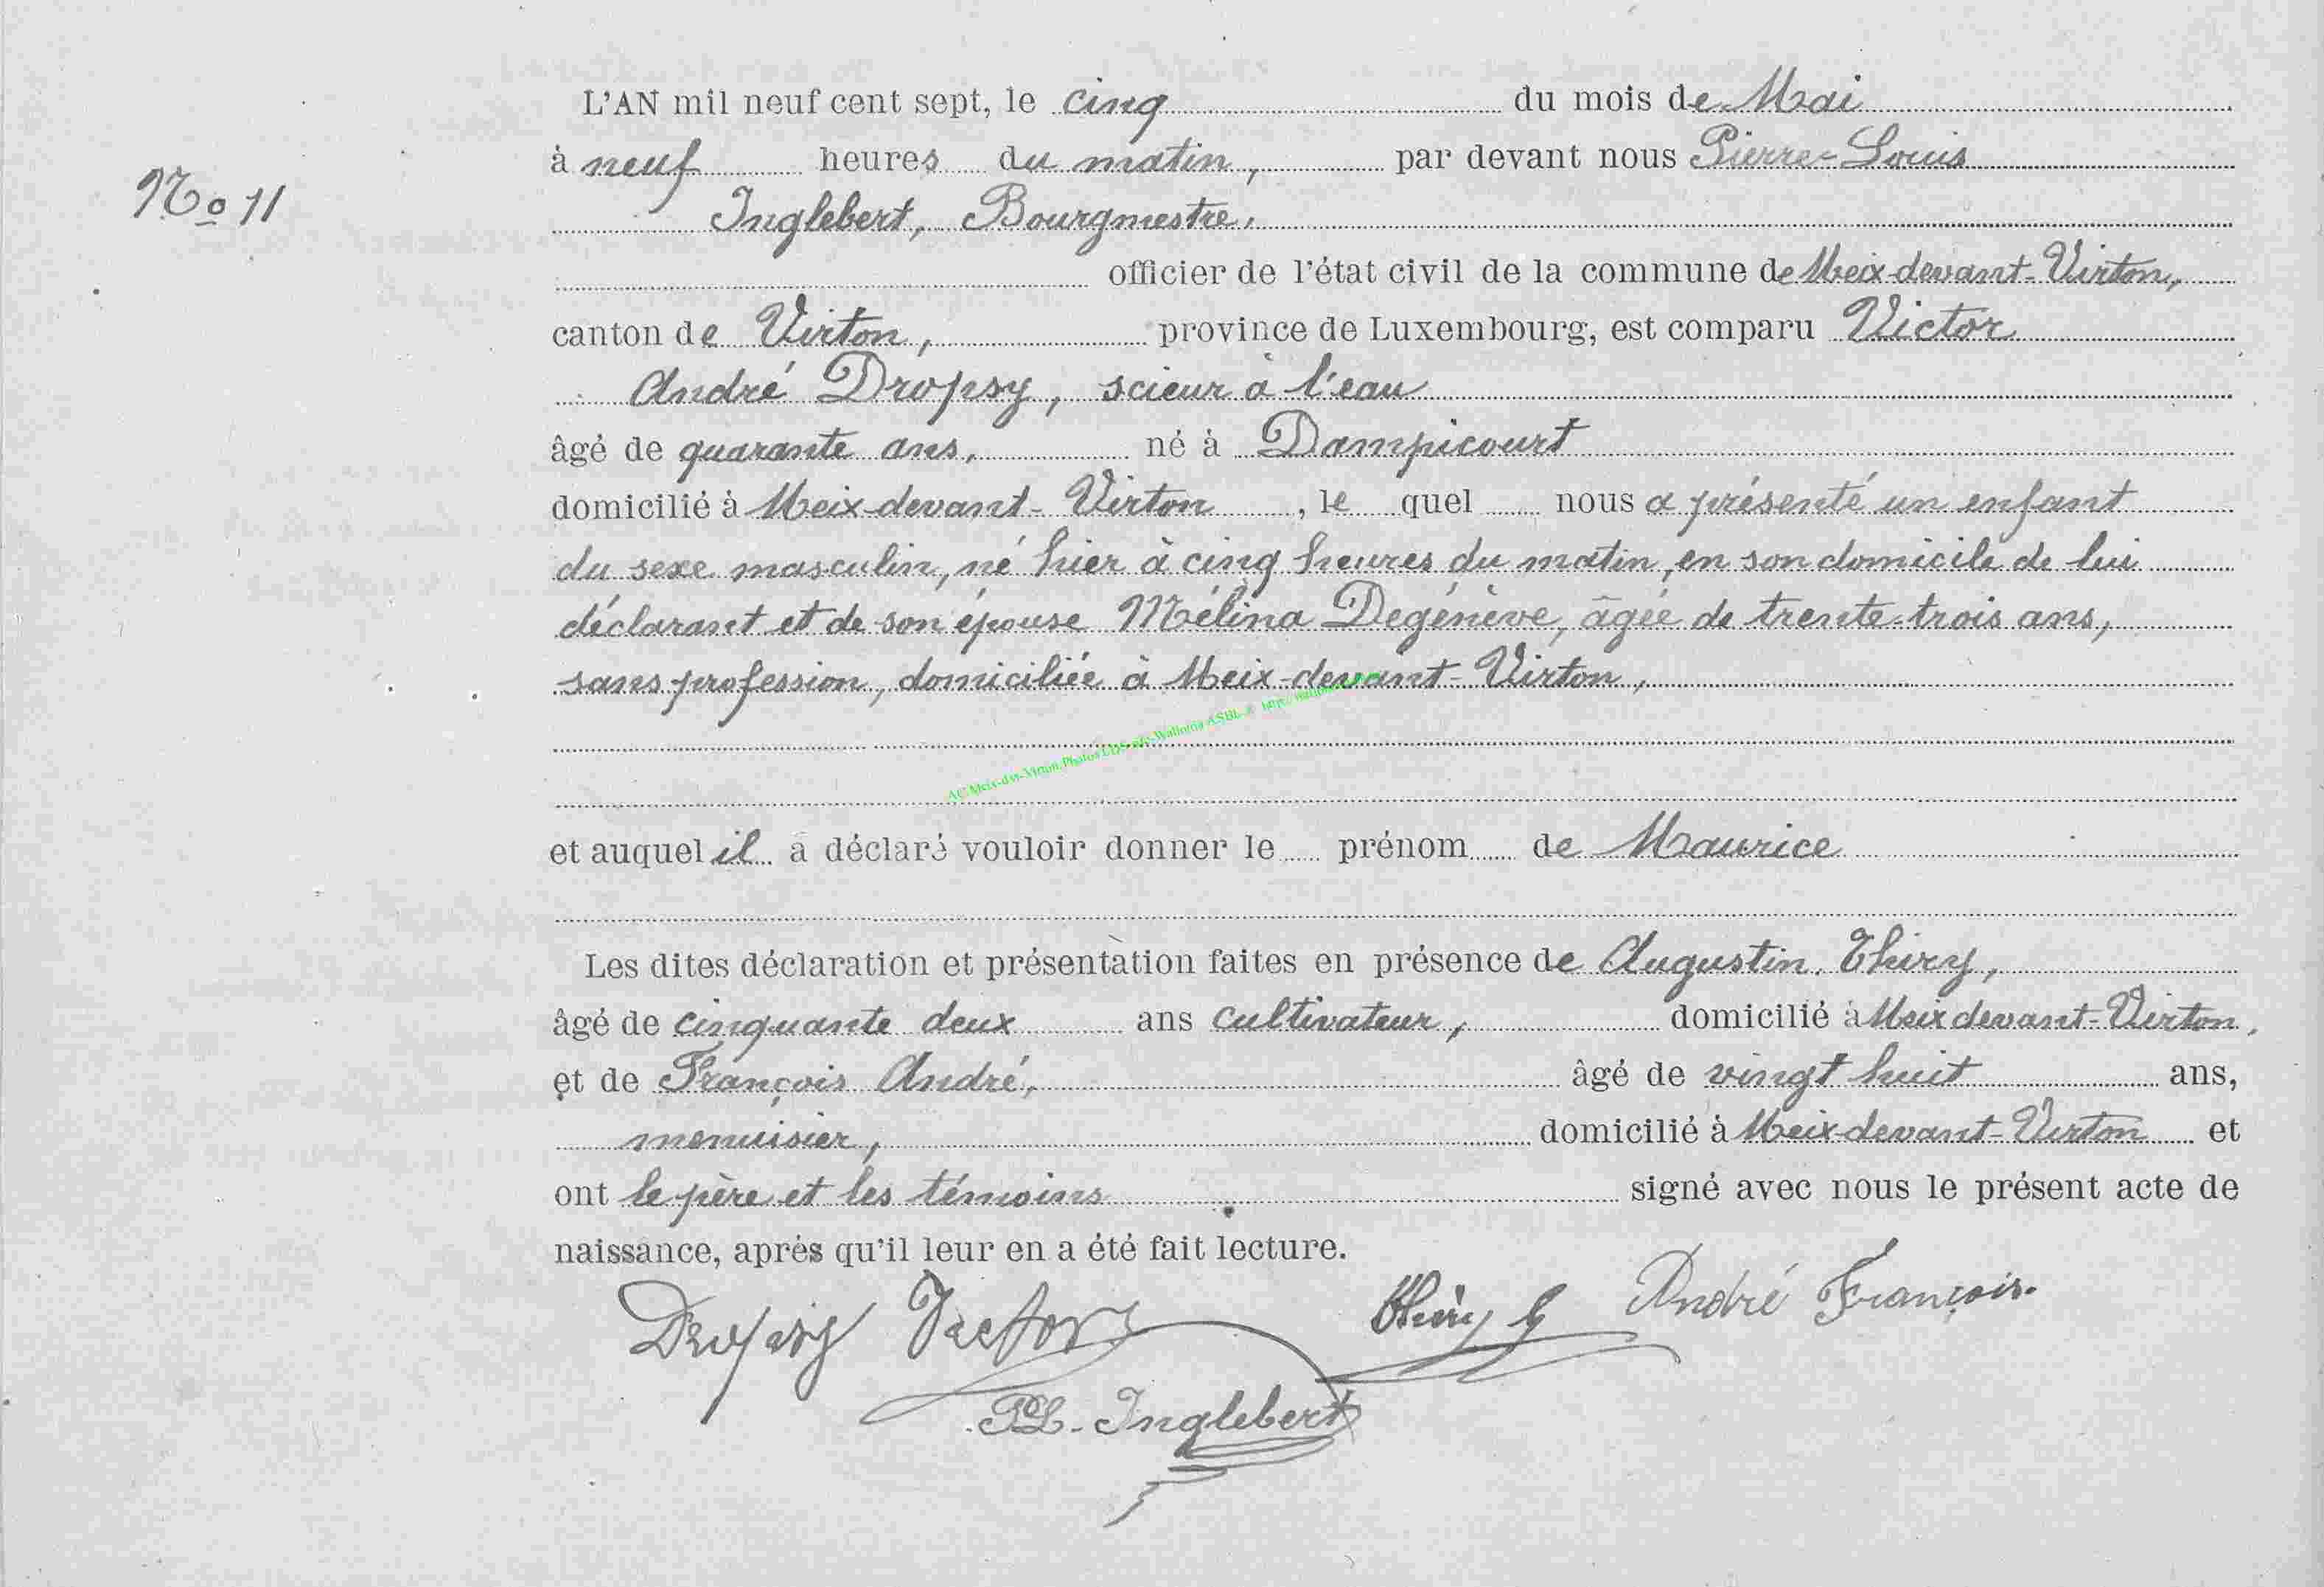 L'AN mil neuf cent sept, le cinq du mois de Mai
N° 11
à neuf heures du matin, par devant nous Pierre-Louis
Inglebert, Bourgmestre,
officier de l'état civil de la commune de Meix-devant-Virton,
canton de Virton, province de Luxembourg, est comparu Victor
André Dropsy, scieur à l'eau
âgé de quarante ans, né à Dampicourt
domicilié à Meix-devant-Virton, le quel nous a présenté un enfant
du sexe masculin, né hier à cinq heures du matin, en son domicile de lui
déclarant et de son épouse Mélina Degénève, âgée de trente-trois ans,
sans profession, domiciliée à Meix-devant-Virton,
AC Meix-dvt-Virton, Photos ASBL
et auquel il a déclaré vouloir donner le prénom de Maurice
Les dites déclaration et présentation faites en présence de Augustin Thiry,
âgé de cinquante deux ans cultivateur, domicilié à Meix devant-Virton,
et de François André, âgé de vingt huit ans,
menuisier, domicilié à Meix-devant-Virton et
ont le père et les témoins signé avec nous le présent acte de
naissance, après qu'il leur en a été fait lecture.
Dropsy Victor Thiry André François.
PL. Inglebert